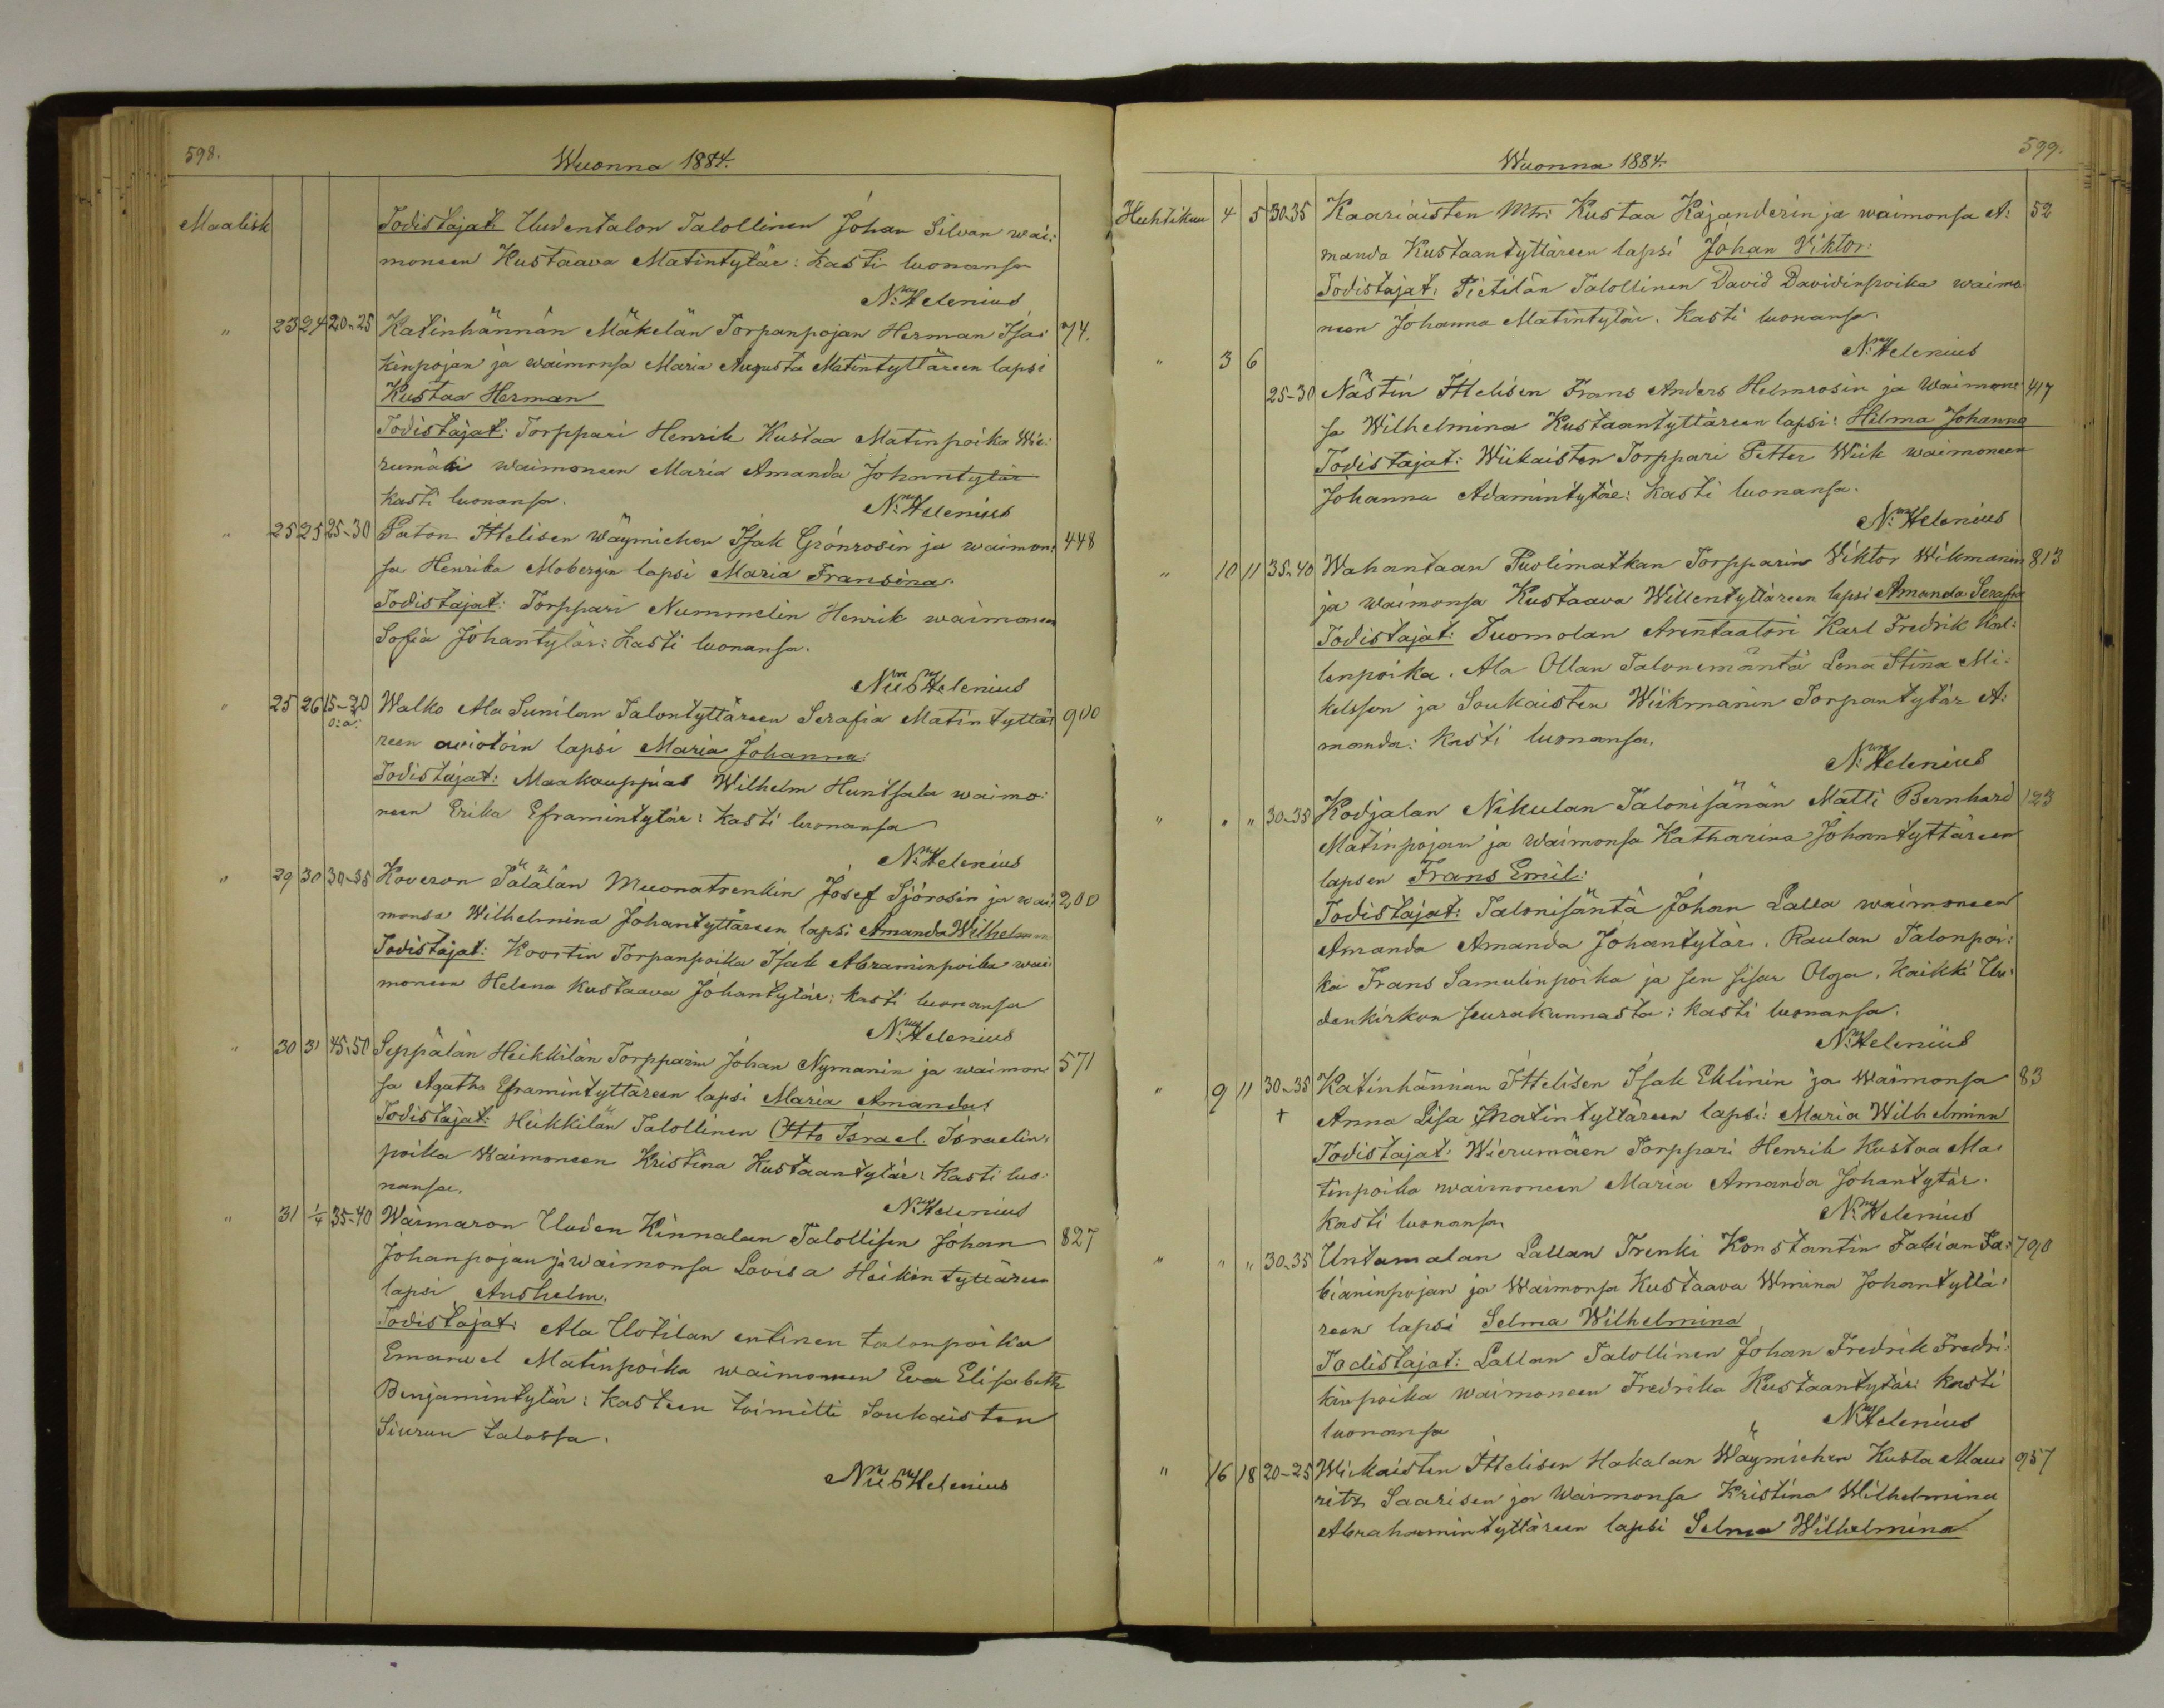 598.
Wuonna 1884.
Maalisk
Todistajat: Uudentalon Talollinen Johan Silvan wai:
moneen Kustaava Matintytär: kasti luonansa
N: Helenius
" 23 24 20-25 Katinhännän Mäkelän Torpanpojan Herman Isa: 74.
kinpojan ja waimonsa Maria Augusta Matintyttäreen lapsi
Kustaa Herman
Todistajat: Torppari Henrik Kustaa Matinpoika Wie:
rumäki waimoneen Maria Amanda Johantytär
kasti luonansa.
N: Helenius
" 25 25 25-30 Paton Ittelisen wäymiehen Isak Grönrosin ja waimon: 448
sa Henrika Mobergin lapsi Maria Fransina.
Todistajat: Torppari Nummelin Henrik waimoneen
Sofia Johantytär: kasti luonansa.
Helenius
" 25 26 15-20 Walko Ala Sunilan Talontyttäreen Serafia Matin tyttä: 900
o: a:
reen aviotoin lapsi Maria Johanna:
Todistajat: Maakauppias Wilhelm Huntsala waimo:
neen Erika Eframintytär: kasti luonansa
N: Helenius
" 29 30 30-35 Koveron Tälälän Muonatrenkin Josef Sjörosin ja wai: 200
monsa Wilhelmina Johantyttäreen lapsi Amanda Wilhelmina
Todistajat: Koortin Torpanpoika Isak Abraminpoika wai:
moneen Helena Kustaava Johantytär: kasti luonansa
N: Helenius
" 30 31 45-50 Seppälän Heikkilän Torpparin Johan Nymanin ja waimon: 571
sa Agatha Eframintyttäreen lapsi Maria Amanda:
Todistajat: Heikkilän Talollinen Otto Israel. Israelin:
poika Waimoneen Kristina Kustaantytär: Kasti luo:
nansa.
N: Helenius
" 31 1/4 35-40 Waimaron Uuden Kinnalan Talollisen Johan 827
Johanpojan ja waimonsa Lovisa Heikin tyttäreen
lapsi Anshelm.
Todistajat: Ala Uotilan entinen talonpoika
Emanuel Matinpoika waimoneen Eva Elisabeth
Benjamintytär: kasteen toimitti Soukaisten
Siurun talossa.
Helenius
599.
Wuonna 1884.
Huhtikuu 4 5 30-35 Kaariaisten Mtr: Kustaa Kajanderin ja waimonsa A: 52
manda Kustaantyttäreen lapsi Johan Viktor:
Todistajat: Pietilän Talollinen David Davidinpoika waimo
neen Johanna Matintytär. Kasti luonansa.
N: Helenius
" 3 6
25-30 Nästin Ittelisen Frans Anders Helmrosin ja Waimon: 417
sa Wilhelmina Kustaantyttäreen lapsi: Hilma Johanna
Todistajat: Wiikaisten Torppari Petter Wiik waimoneen
Johanna Adamintytär: Kasti luonansa.
N: Helenius
" 10 11 35-40 Wahantaan Puolimatkan Torpparin Viktor Wikmanin 813
ja waimonsa Kustaava Willentyttäreen lapsi Amanda Serafia
Todistajat: Tuomolan Arentaatori Karl Fredrik Kal:
lenpoika. Ala Ollan Talonemäntä Lena Stina Mi:
kelsson ja Soukaisten Wiikmanin Torpantytär A:
manda: Kasti luonansa.
N: Helenius
" " " 30-35 Kodjalan Nikulan Talonisänän Matti Bernhard 123
Matinpojan ja waimonsa Katharina Johantyttäreen
lapsen Frans Emil:
Todistajat: Talonisäntä Johan Lalla waimoneen
Amanda Amanda Johantytär. Raulan Talonpoi:
ka Frans Samulinpoika ja sen sisar Olga. Kaikki Uu:
denkirkon seurakunnasta: kasti luonansa.
N: Helenius
" 9 11 30-35 Katinhännän Ittelisen Isak Eklinin ja Waimonsa 83
+ Anna Lisa Matintyttäreen lapsi: Maria Wilhelmina
Todistajat: Wierumäen Torppari Henrik Kustaa Ma:
tinpoika waimoneen Maria Amanda Johantytär.
Kasti luonansa
N: Helenius
" " " 30-35 Untamalan Lallan Trenki Konstantin Fabian Fa: 790
bianinpojan ja Waimonsa Kustaava Wmina Johantyttä:
reen lapsi Selma Wilhelmina
Todistajat: Lallan Talollinen Johan Fredrik Fredri:
kinpoika waimoneen Fredrika Kustaantytär: kasti
luonansa
N: Helenius
" 16 18 20-25 Wiikaisten Ittelisen Hakalan Wäymiehen Kusta Mau: 957
ritz Saarisen ja Waimonsa Kristina Wilhelmina
Abrahamintyttäreen lapsi Selma Wilhelmina